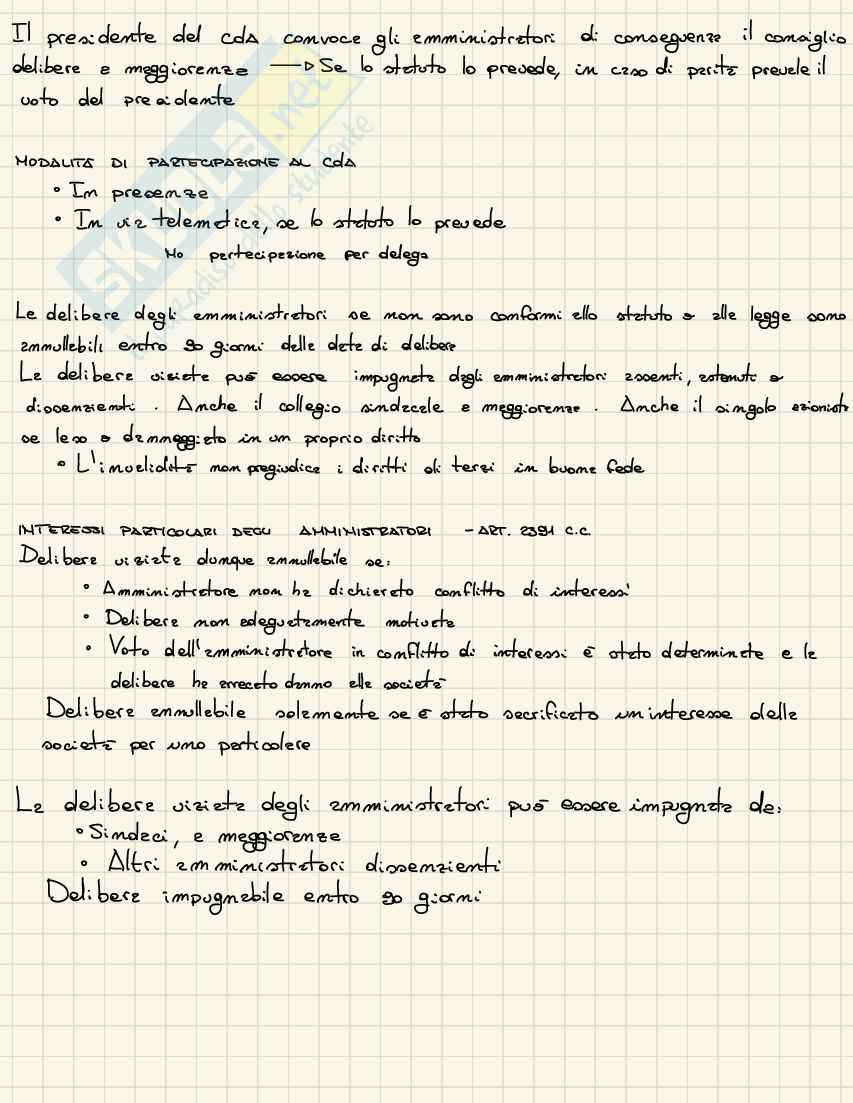 Il presidente del CdA convoca gli amministratori di conseguenza il consiglio
delibera a maggioranza → Se lo statuto lo prevede, in caso di parità prevale il
voto del presidente
MODALITÀ DI PARTECIPAZIONE AL CdA
• In presenza
• In via telematica, se lo statuto lo prevede
No partecipazione per delega
Le delibere degli amministratori se non sono conformi allo statuto o alle legge sono
annullabili entro 90 giorni dalla data di delibera
La delibera viziata può essere impugnata dagli amministratori assenti, astenuti o
dissenzienti. Anche il collegio sindacale a maggioranza. Anche il singolo azionista
se leso o danneggiato in un proprio diritto
• L'invalidità non pregiudica i diritti di terzi in buona fede
INTERESSI PARTICOLARI DEGLI AMMINISTRATORI - ART. 2391 C.C.
Delibera viziata dunque annullabile se:
• Amministratore non ha dichiarato conflitto di interessi
• Delibera non adeguatamente motivata
• Voto dell'amministratore in conflitto di interessi è stato determinate e la
delibera ha arrecato danno alla società
Delibera annullabile solamente se è stato sacrificato un interesse della
società per uno particolare
La delibera viziata degli amministratori può essere impugnata da:
• Sindaci, a maggioranza
• Altri amministratori dissenzienti
Delibera impugnabile entro 90 giorni
SKUOLA.net
il paradiso dello studente